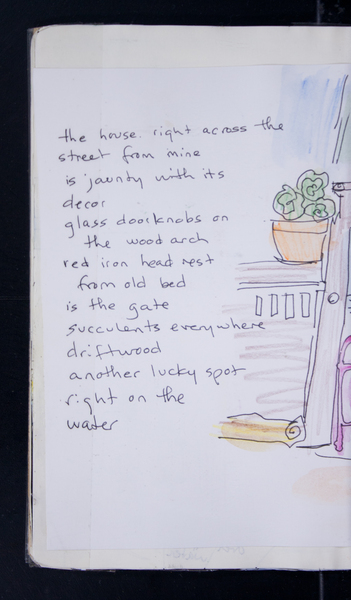 the house right across the
street from mine
is jaunty with its
decor
glass doorknobs on
the wood arch
red iron head rest
from old bed
is the gate
succulents everywhere
driftwood
another lucky spot
right on the
water